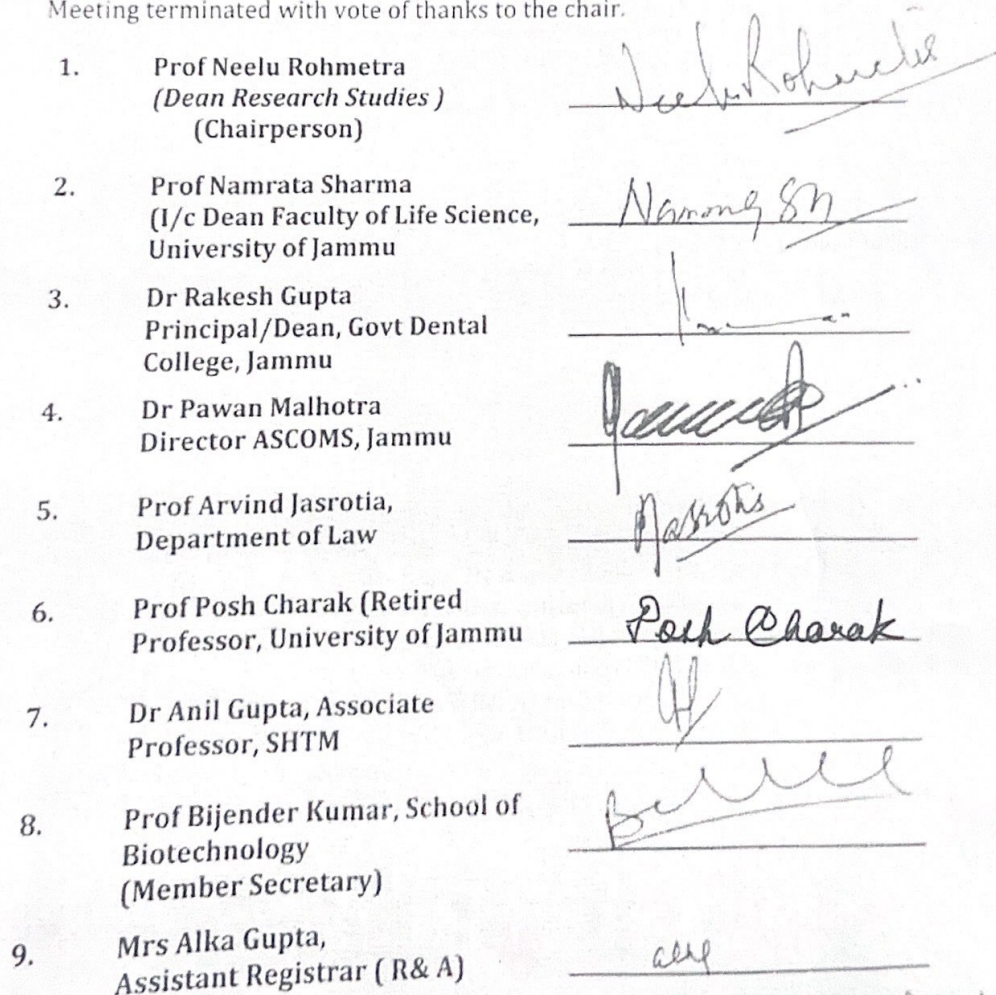 Meeting terminated with vote of thanks to the chair.
1. Prof Neelu Rohmetra
(Dean Research Studies )
(Chairperson)
Neelu Rohmetra
2. Prof Namrata Sharma
(I/c Dean Faculty of Life Science,
University of Jammu
3. Dr Rakesh Gupta
Principal/Dean, Govt Dental
College, Jammu
4. Dr Pawan Malhotra
Director ASCOMS, Jammu
5. Prof Arvind Jasrotia,
Department of Law
6. Prof Posh Charak (Retired
Professor, University of Jammu
Posh Charak
7. Dr Anil Gupta, Associate
Professor, SHTM
8. Prof Bijender Kumar, School of
Biotechnology
(Member Secretary)
9. Mrs Alka Gupta,
Assistant Registrar ( R& A)